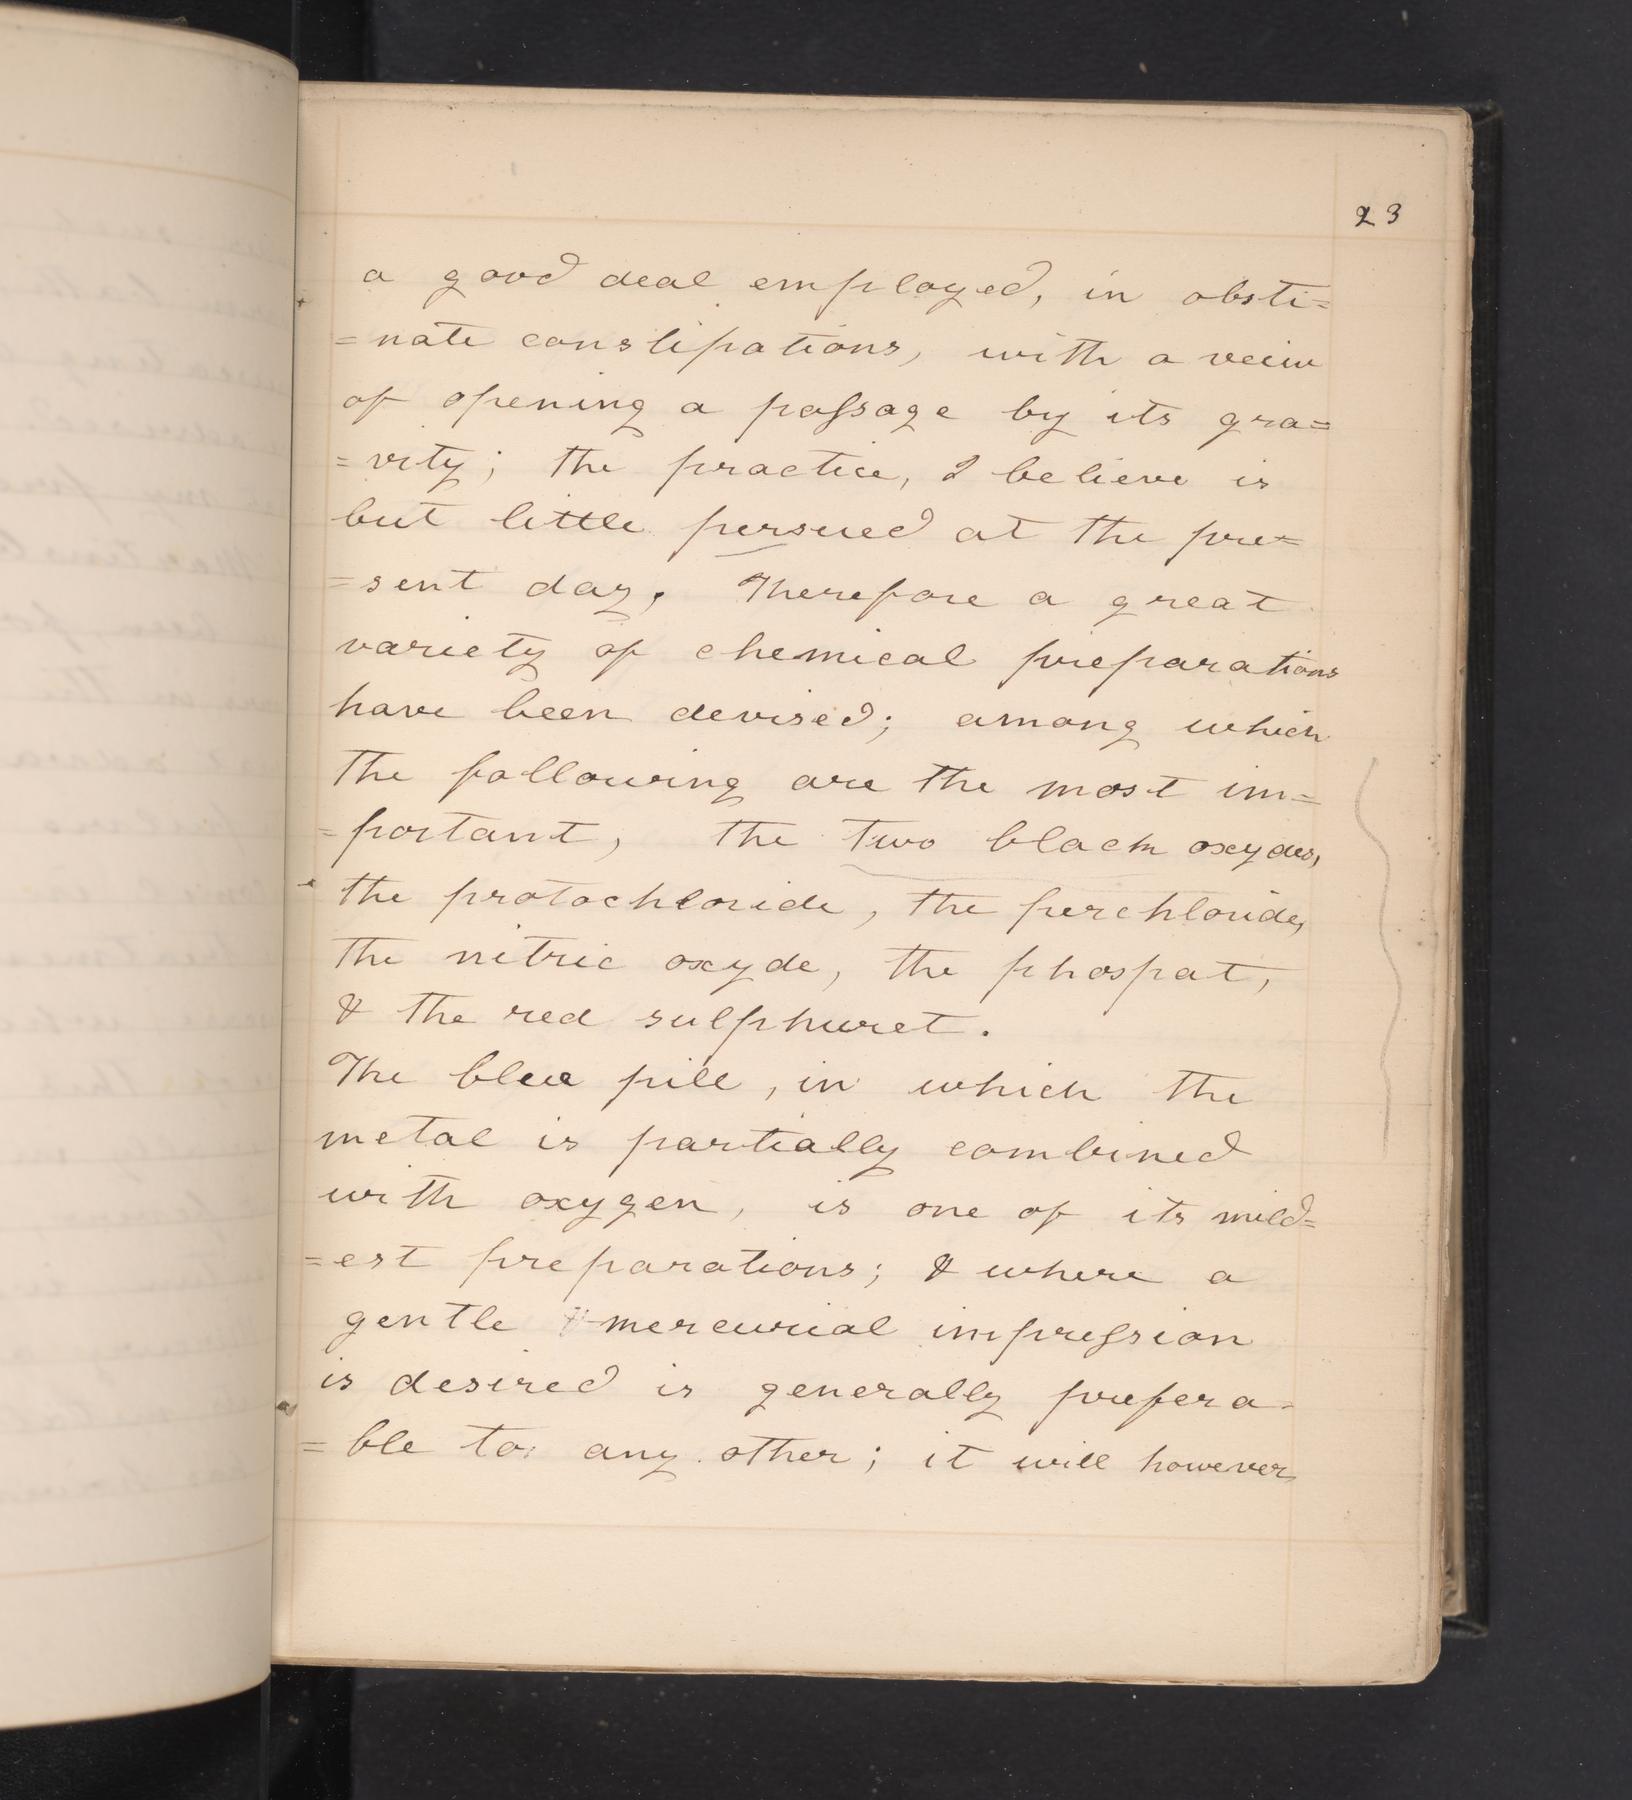 23
a good deal employed, in obsti=
=nate constipations, with a veiw
of opening a passage by its gra=
=vity; the practice, I believe is
but little persued at the pre=
=sent day. Therefore a great
variety of chemical preparations
have been devised; among which
the following are the most im=
=portant, the two black oxydes,
the protochloride, the perchloride,
the nitric oxyde, the phospat,
& the red sulphuret.
The blue pill, in which the
metal is partially combined
with oxygen, is one of its mild=
=est preparations; & where a
gentle mercurial impression
is desired is generally prefera=
=ble to any other; it will however